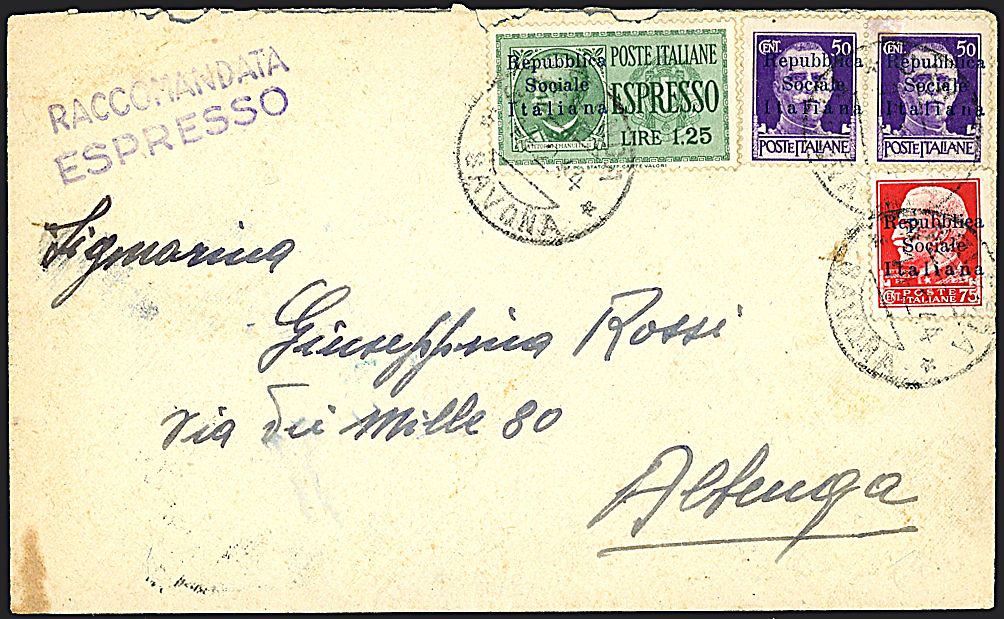 RACCOMANDATA
ESPRESSO
POSTE ITALIANE
ESPRESSO
LIRE 1.25
Repubblica
Sociale
Italiana
CENT. 50
Repubblica
Sociale
Italiana
POSTE ITALIANE
CENT. 50
Repubblica
Sociale
Italiana
POSTE ITALIANE
Repubblica
Sociale
Italiana
POSTE
CENT. ITALIANE 75
SAVONA
SAVONA
Signorina
Giuseppina Rossi
Via Dei Mille 80
Albenga